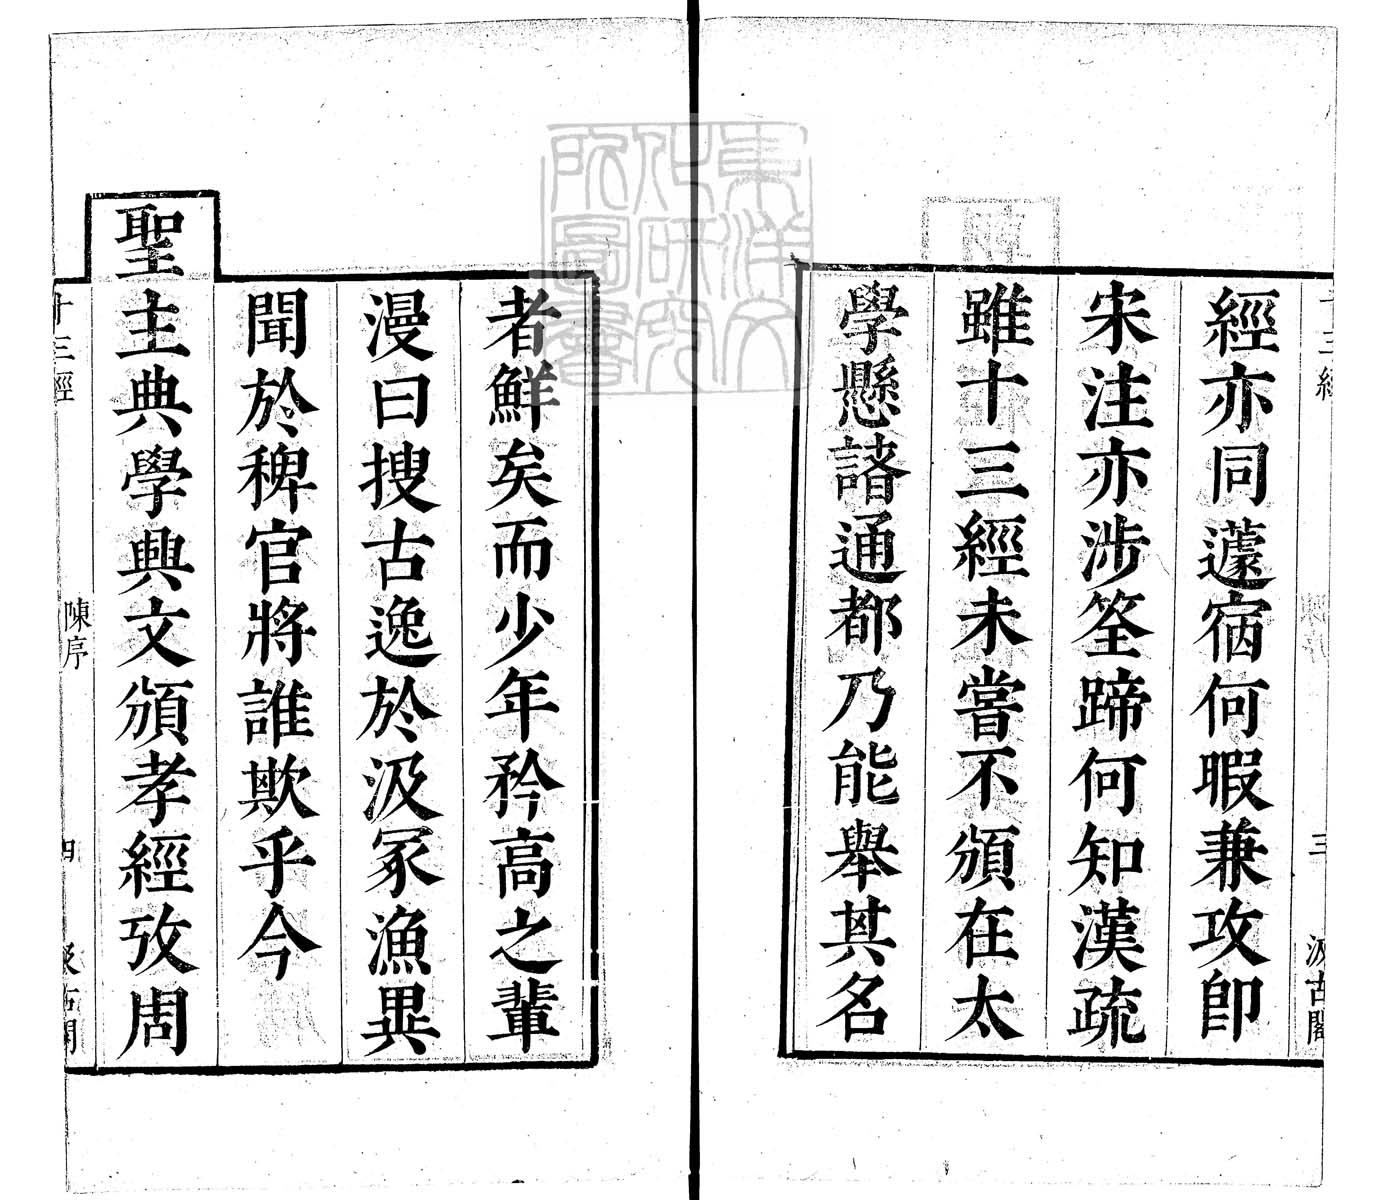 經亦同蘧宿何暇兼攻卽
宋注亦涉筌蹄何知漢疏
雖十三經未嘗不頒在太
學懸諸通都乃能舉其名
者鮮矣而少年矜高之輩
漫曰搜古逸於汲冢漁異
聞於稗官將誰欺乎今
聖主典學興文頒孝經攷周
十三經
三
汲古閣
十三經
陳序
四
汲古閣
東洋文
化研究
所圖書